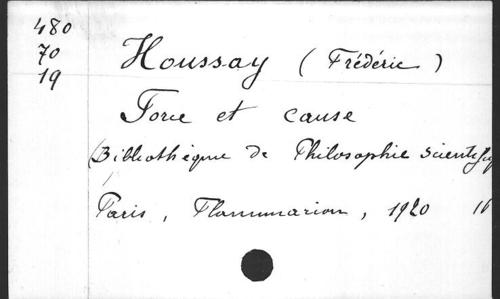 480
70
19
Houssay (Frédéric)
Force et cause
(Bibliothèque de Philosophie scientifiq
Paris, Flammarion, 1920